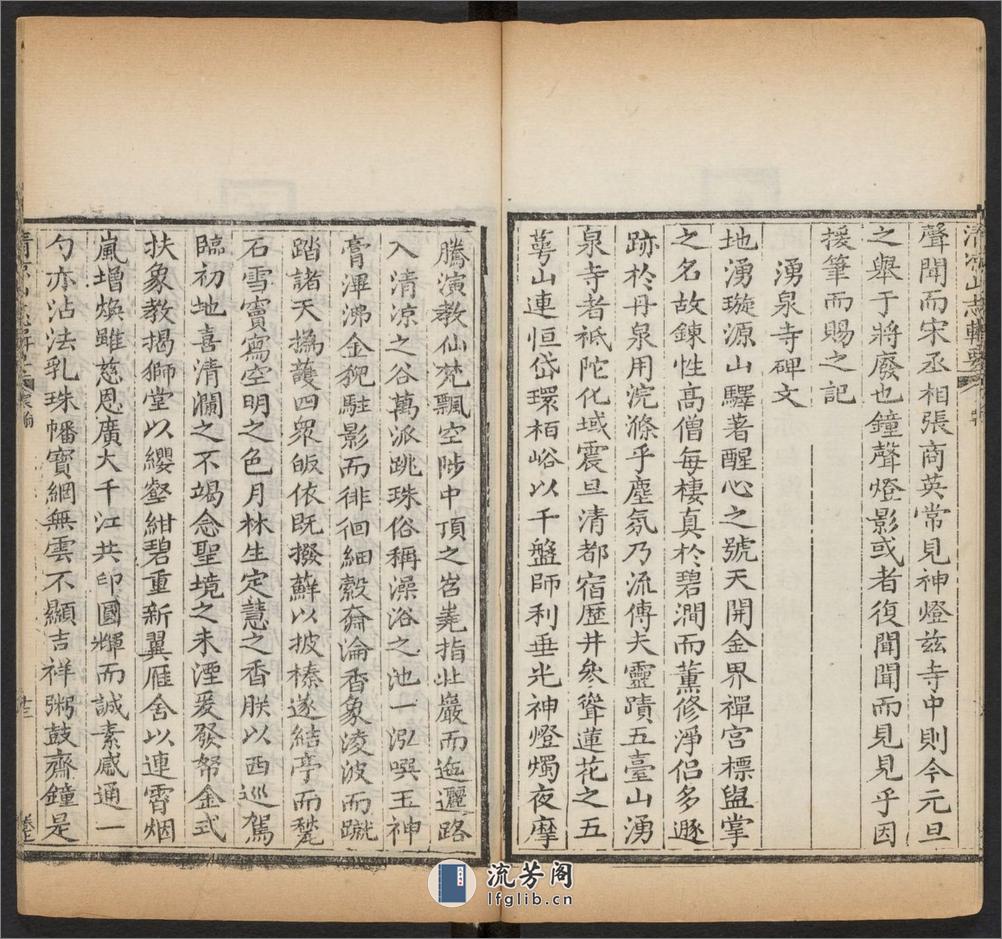 聲聞而宋丞相張商英常見神燈茲寺中則今元旦
之舉于將廢也鐘聲燈影或者復聞聞而見見乎因
援筆而賜之記
湧泉寺碑文
地湧璇源山驛著醒心之號天開金界禪宮標盥掌
之名故鍊性高僧每棲真於碧澗而薰修淨侶多遯
跡於丹泉用浣滌乎塵氛乃流傳夫靈蹟五臺山湧
泉寺者祗陀化域震旦清都宿歷井叅聳蓮花之五
蕚山連恒岱環栢峪以千盤師利垂光神燈燭夜摩
騰演教仙梵飄空陟中頂之岧嶤指北巖而迤邐路
入清涼之谷萬派跳珠俗稱澡浴之池一泓噀玉神
膏渾沸金猊駐影而徘徊細縠奫淪香象淩波而蹴
踏諸天撝護四眾皈依既撥蘚以披榛遂結亭而甃
石雪竇寫空明之色月林生定慧之香朕以西巡駕
臨初地喜清瀾之不竭念聖境之未湮爰發帑金式
扶象教揭獅堂以纓壑紺碧重新翼雁舍以連霄烟
嵐增煥雖慈恩廣大千江共印國輝而誠素感通一
勺亦沾法乳珠幡寶網無雲不顯吉祥粥鼓齋鐘是
流芳阁
lfglib.cn